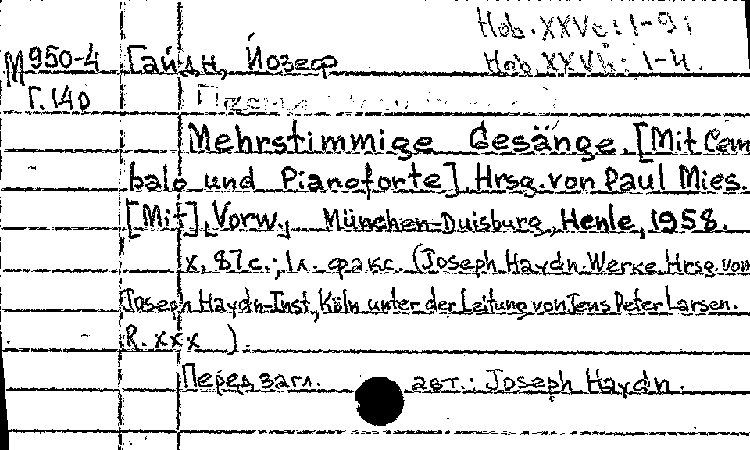 Hob. XXVc: 1-9;
М 950-4 Гайдн, Йозеф Hob. XXVb: 1-4.
Г.140
Mehrstimmige Gesänge. [Mit Cem
balo und Pianoforte]. Hrsg. von Paul Mies.
[Mit] Vorw. München-Duisburg, Henle, 1958.
X, 87 с.; 1 л. факс. (Joseph Haydn. Werke. Hrsg. vom
Joseph Haydn-Inst., Köln unter der Leitung von Jens Peter Larsen.
R. XXX ).
Перед загл. авт.: Joseph Haydn.